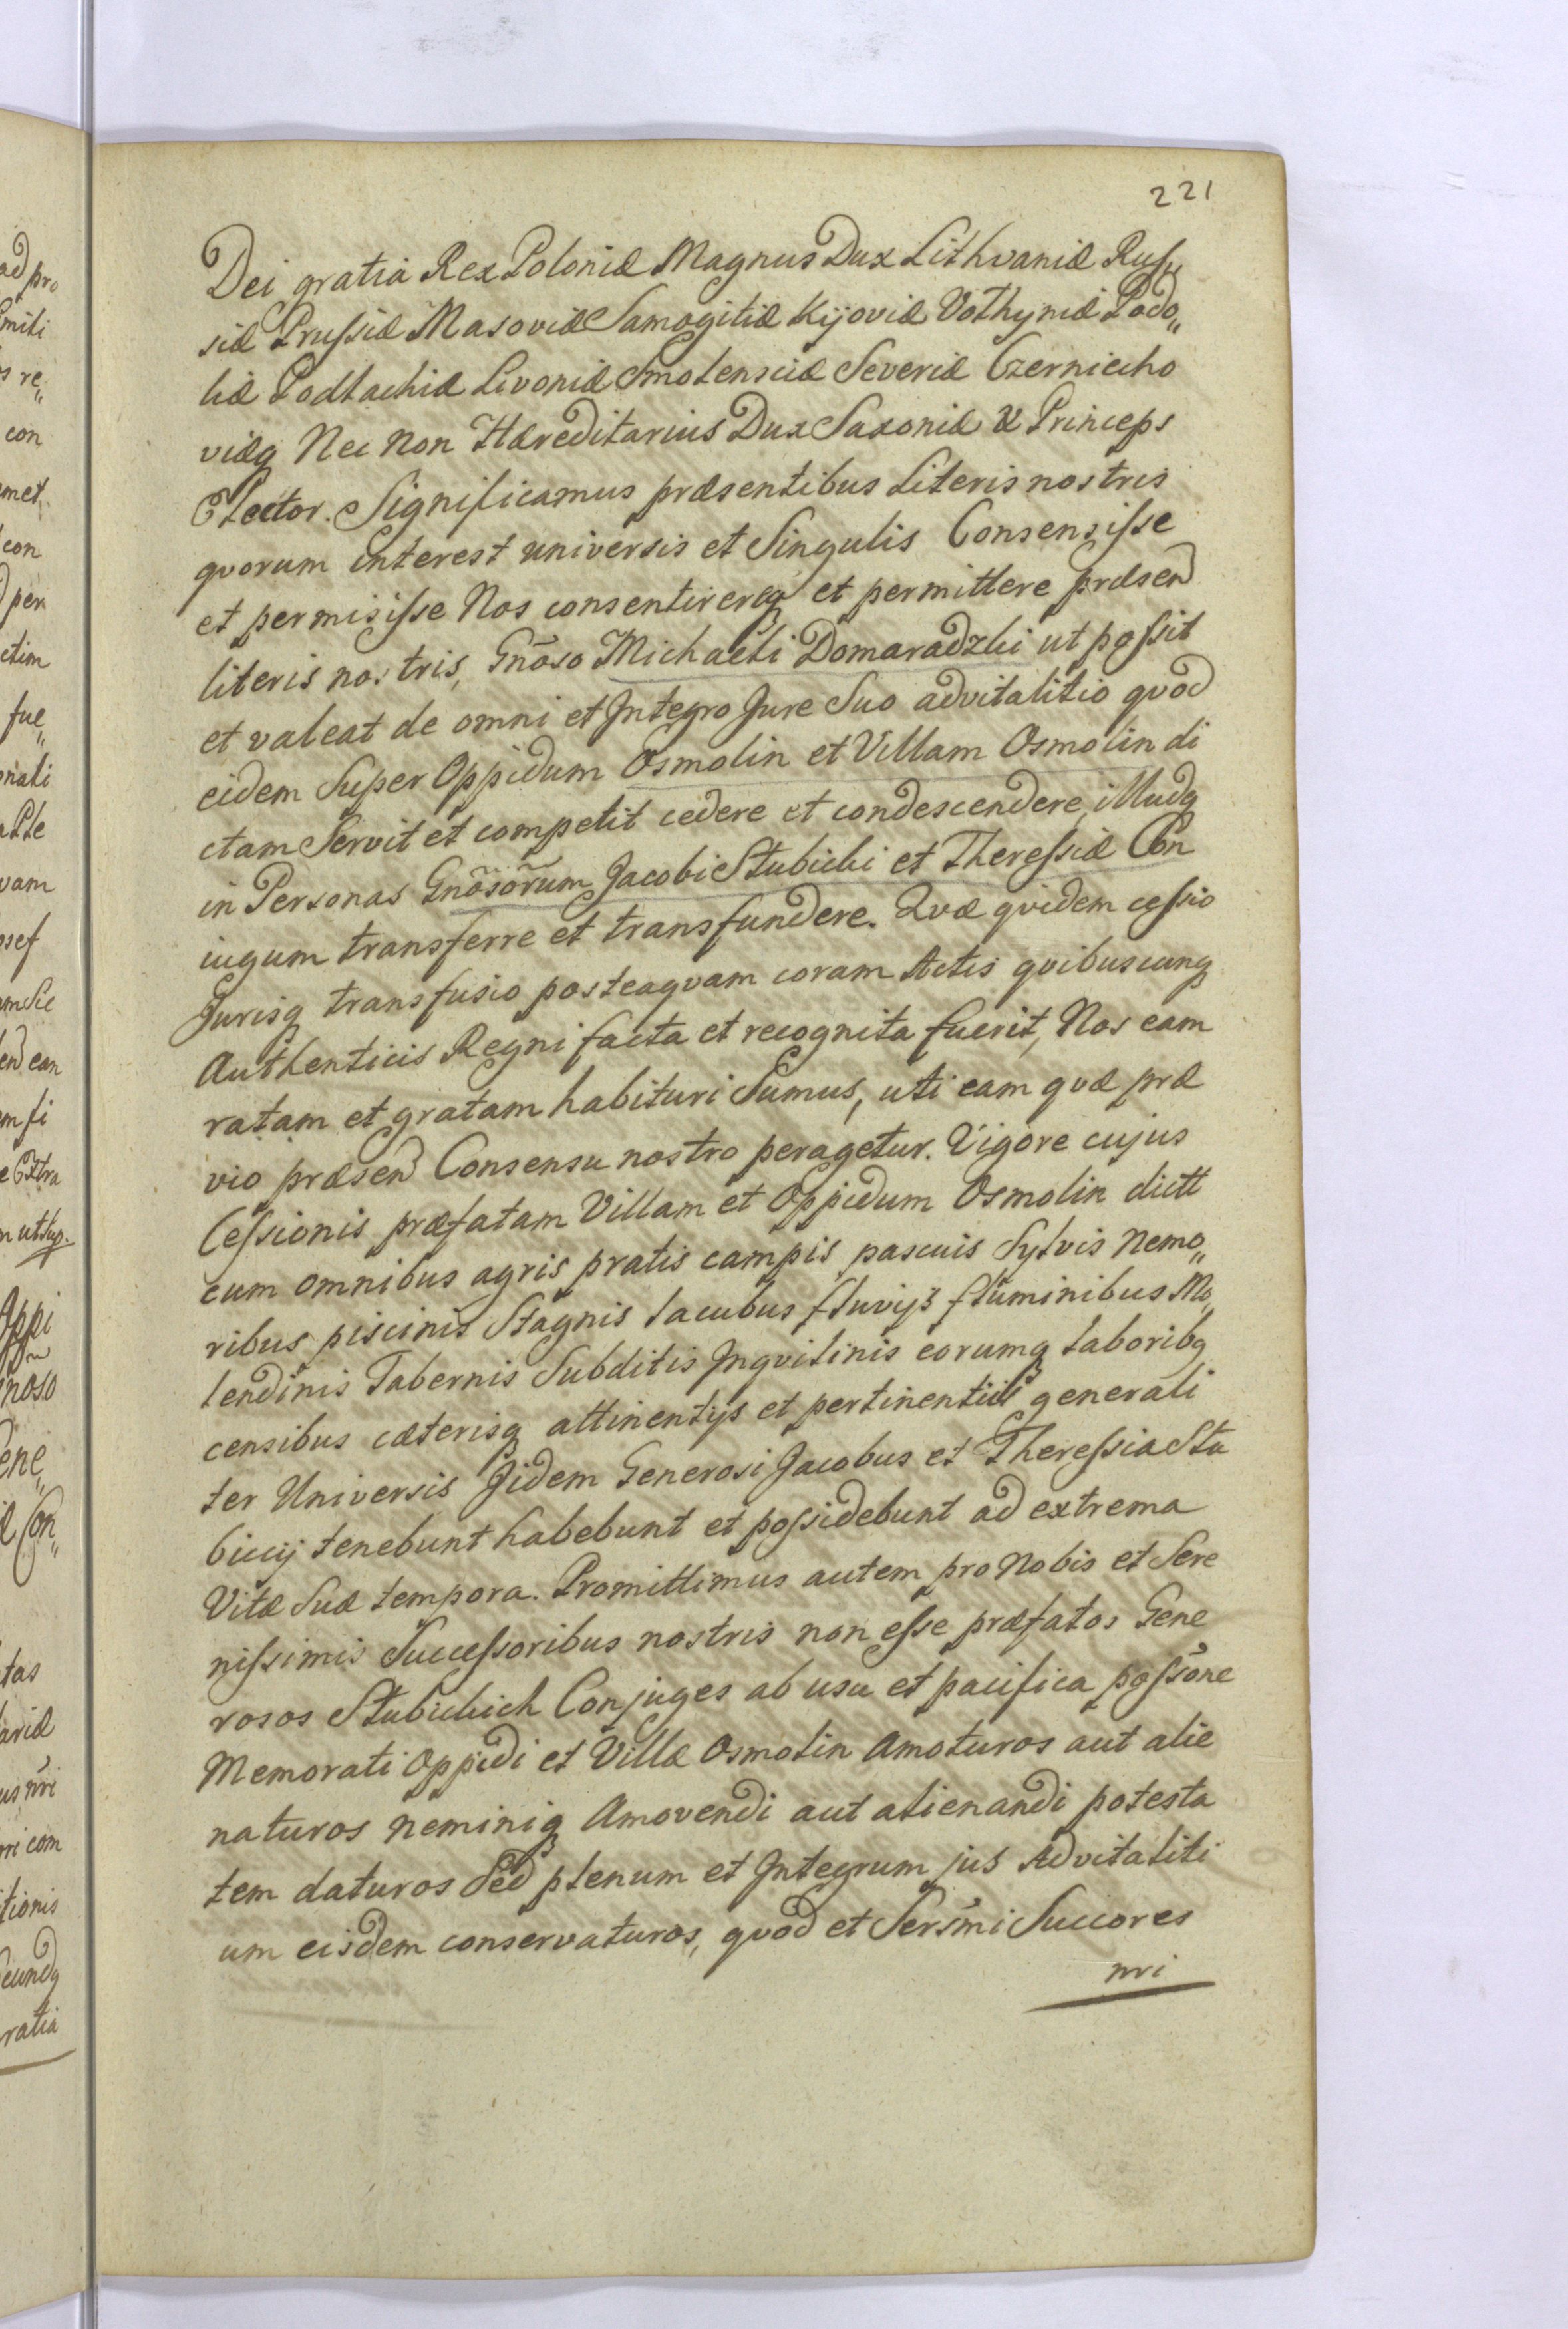 221
Dei gratia Rex Poloniæ Magnus Dux Lithvaniæ Rus„
siæ Prussiæ Masoviæ Samogitiæ Kijoviæ Volhyniæ Podo„
liæ Podlachiæ Livoniæ Smolensciæ Severiæ Czerniecho
viæq Nec Non Hæreditarius Dux Saxoniæ & Princeps
Elector. Significamus præsentibus Literis nostris
qvorum interest universis et Singulis Consensisse
et permisisse Nos consentirereq et permittere præsen
literis nostris, Gnõso Michaeli Domaradzki ut possit
et valeat de omni et Jntegro Jure Suo advitalitio qvod
eidem Super Oppidum Osmolin et Villam Osmolin di
ctam Servit et competit cedere et condescendere, illudq
in Personas Gnõsõrum Jacobi Stubicki et Theressiæ Con
iugum transferre et transfundere. Qvæ qvidem cessio
Jurisq transfusio posteaqvam coram Actis qvibuscunq
Authenticis Regni facta et recognita fuerit, Nos eam
ratam et gratam habituri Sumus, uti eam qvæ præ
vio præsen Consensu nostro peragetur. Vigore cujus
Cessionis præfatam Villam et Oppidum Osmolin dictt
cum omnibus agris pratis campis pascuis Sylvis Nemo„
ribus piscinis Stagnis lacubus fluvijs fluminibus Mo„
lendinis Tabernis Subditis Jnqvilinis eorumq laboribq
censibus cæterisq attinentijs et pertinentiis generali
ter Universis Jidem Generosi Jacobus et Theressia Stu
biccij tenebunt habebunt et possidebunt ad extrema
Vitæ Suæ tempora. Promittimus autem pro Nobis et Sere
nissimis Successoribus nostris non esse præfatos Gene
rosos Stubickich Conjuges ab usu et pacifica possõne
Memorati Oppidi et Villæ Osmolin Amoturos aut alie
naturos neminiq Amovendi aut alienandi potesta
tem daturos Sed plenum et Jntegrum jus Advitaliti
um eisdem conservaturos, qvod et Sersmi Succores
nri